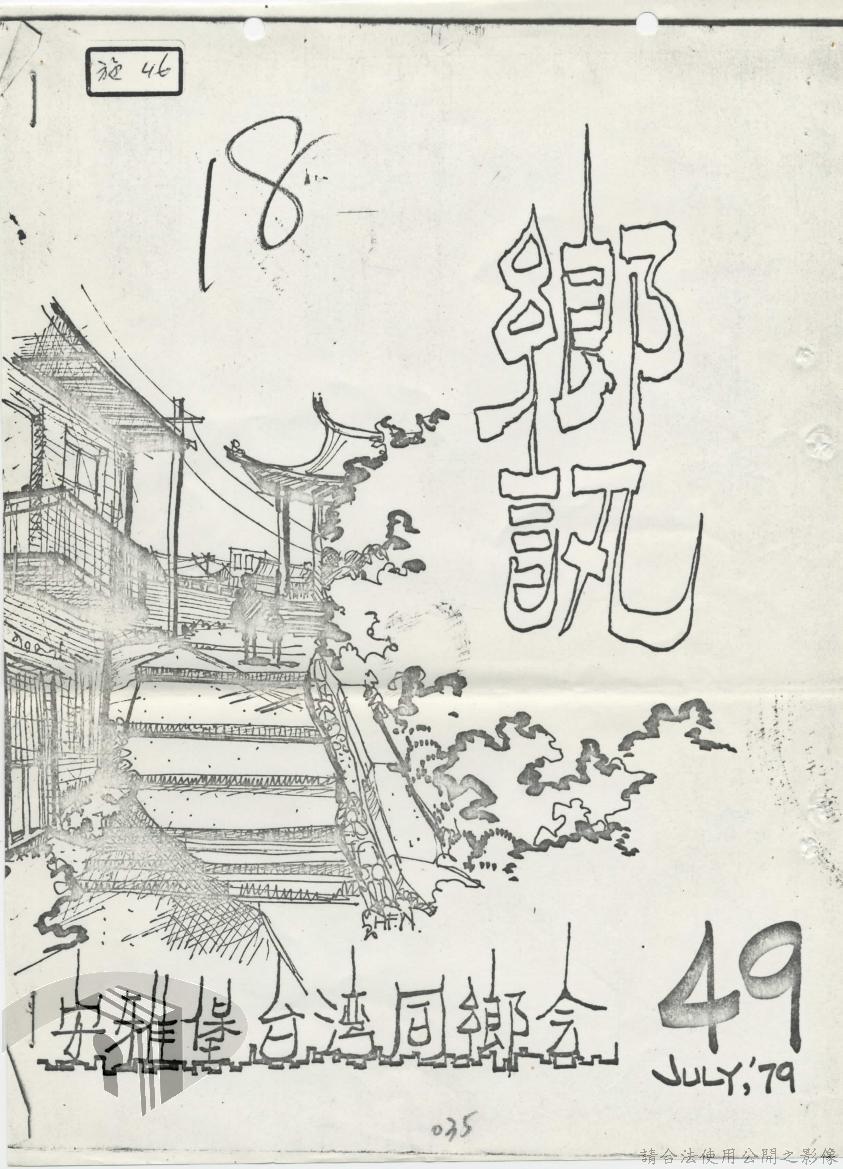 施 46
18
鄉訊
HFN
安雅堡台湾同鄉会
49
JULY, '79
035
請合法使用公開之影像